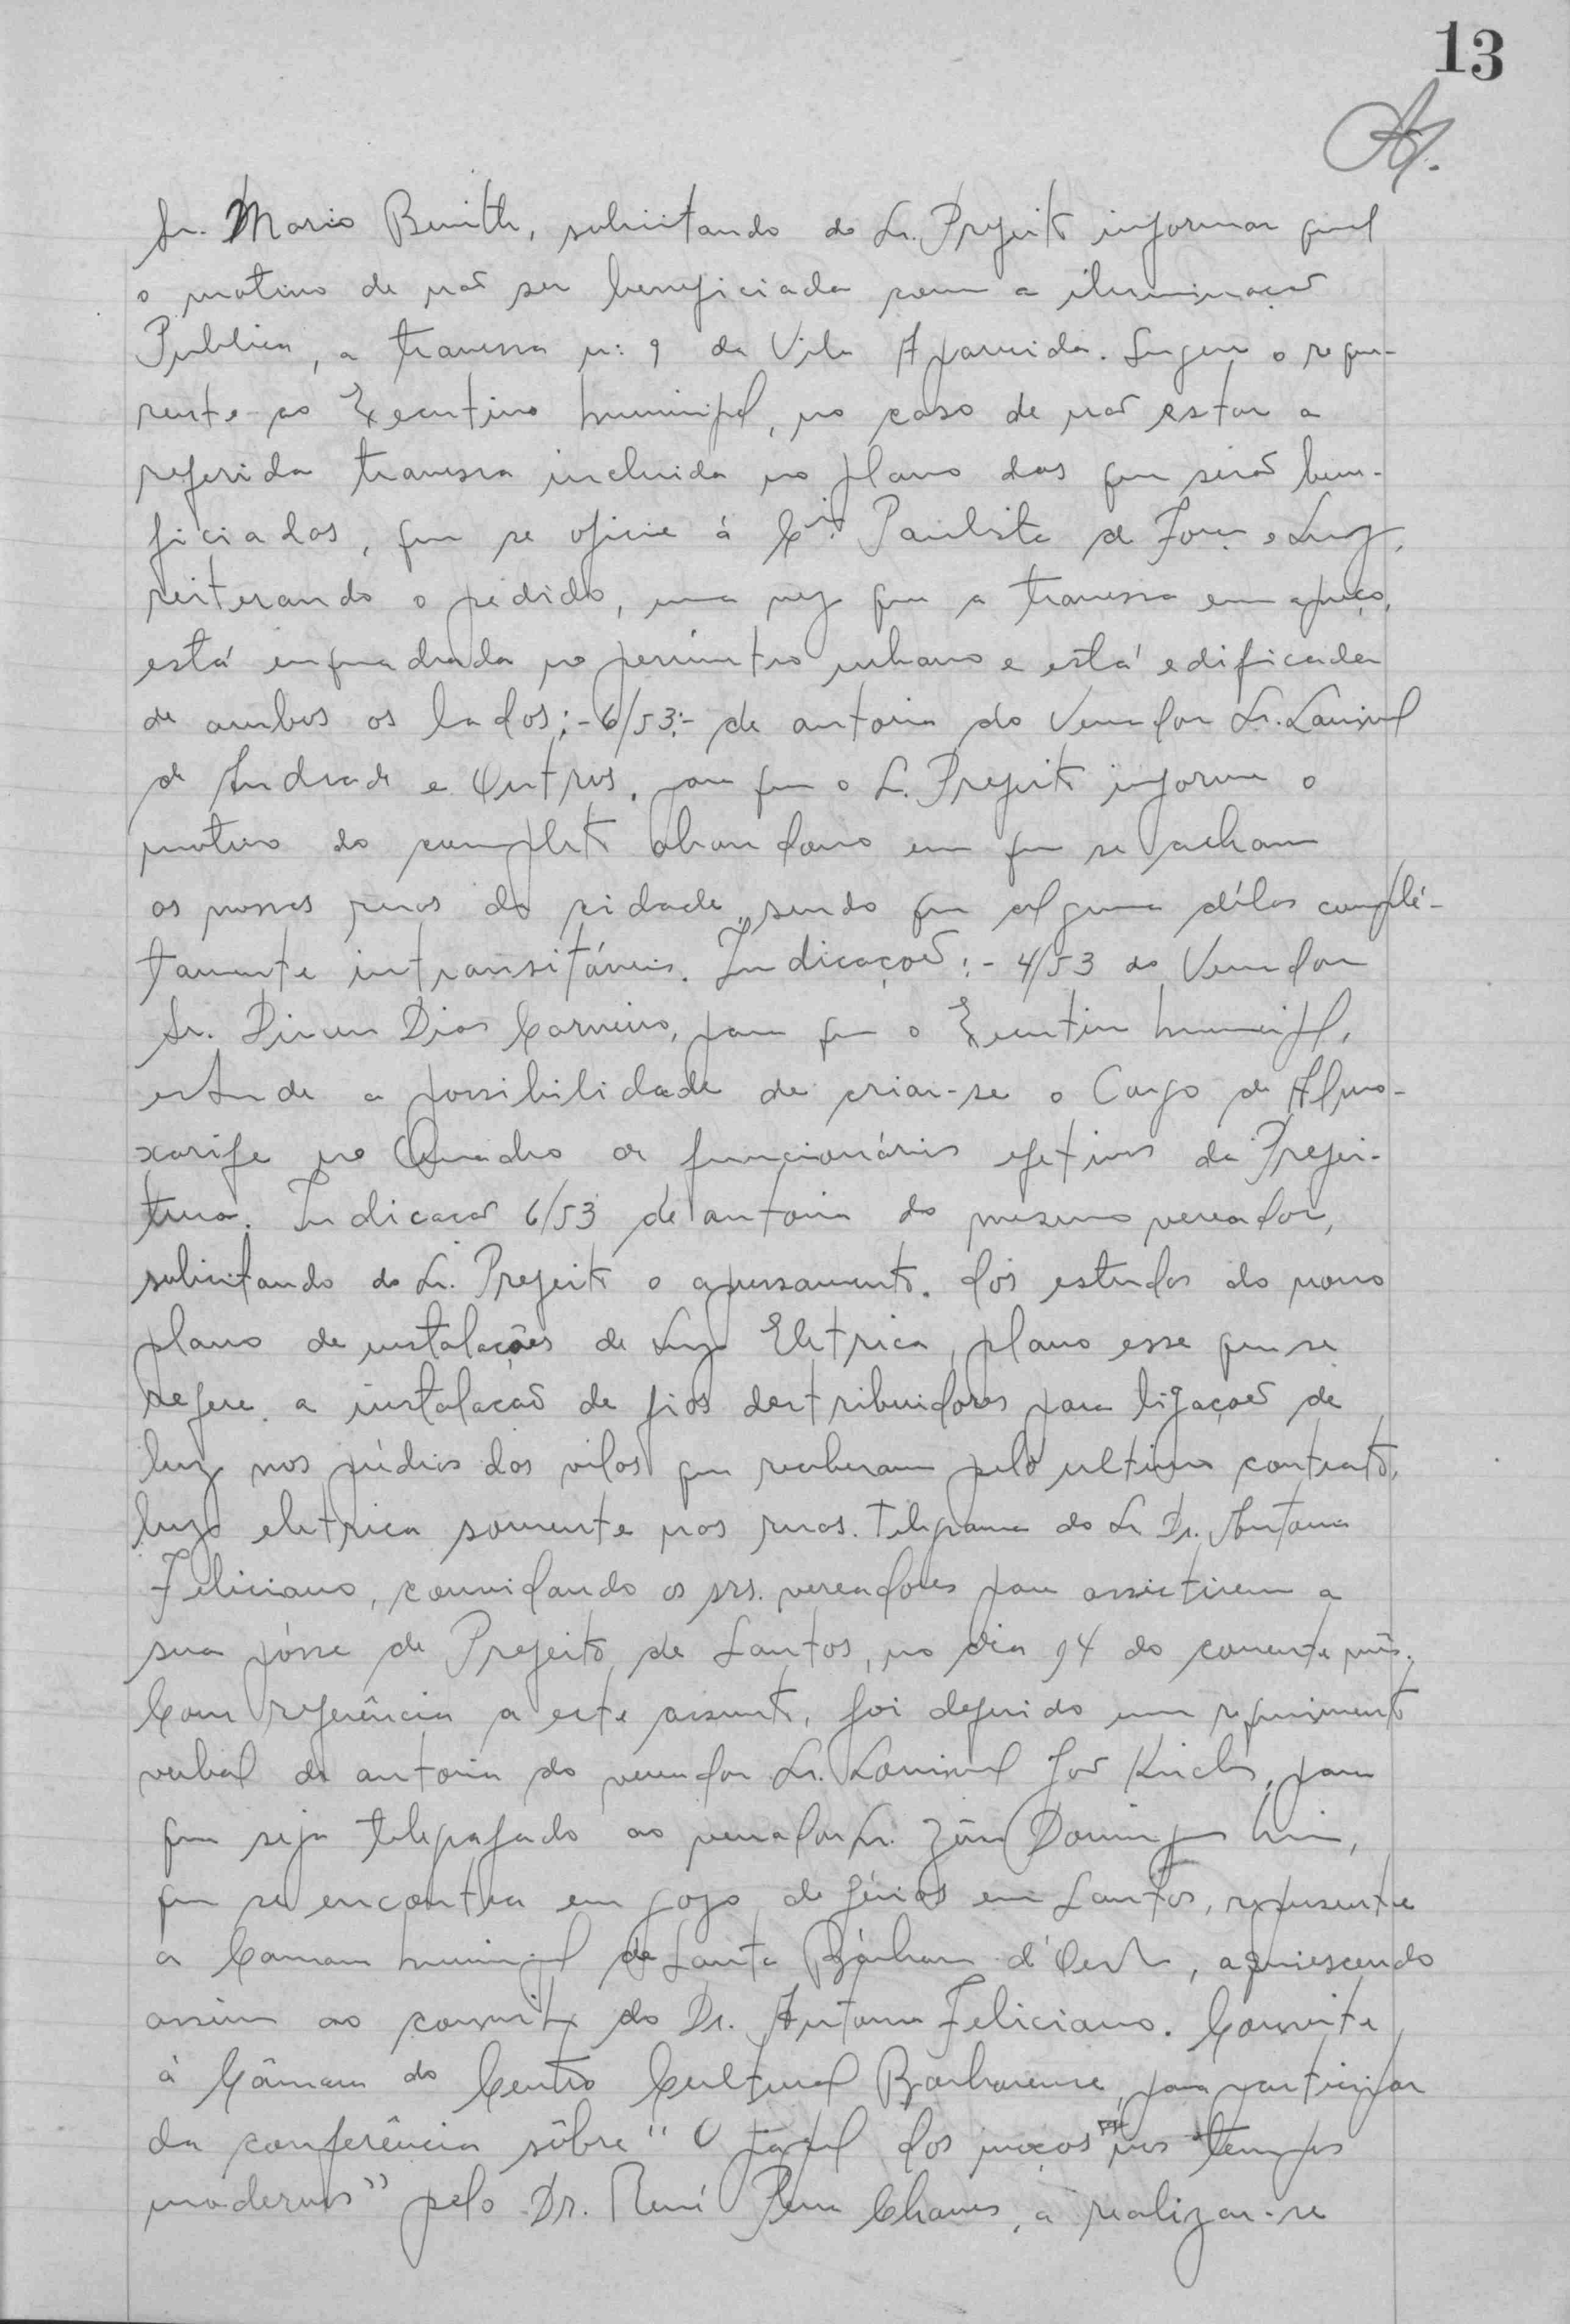 13
Sr. Mario Benith, solicitando do Sr. Prefeito informar qual
o motivo de não ser beneficiada com a iluminação
Publica, a travessa n: 9 da Vila Aparecida. Sugere o reque-
rente ao Executivo Municipal, no caso de não estar a
referida travessa incluida no plano das que serão bene-
ficiadas, que se oficie á Cia. Paulista de Força e Luz,
reiterando o pedido, uma vez que a travessa em apreço,
está enquadrada no perimetro urbano e está edificada
de ambos os lados:- 6/53:- de autoria do Vereador Sr. Laurival
de Andrade e Outros, para que o Sr. Prefeito informe o
motivo do completo abandono em que se acham
as nossas ruas da cidade, sendo que alguma délas complé-
tamente intransitáveis. Indicação:- 4/53 do Vereador
Sr. Dirceu Dias Carneiro, para que o Executivo Municipal,
estude a possibilidade de criar-se o Cargo de Almo-
xarife no Quadro de funcionários efetivos da Prefei-
tura. Indicação 6/53 de autoria do mesmo vereador,
solicitando do Sr. Prefeito o apressamento. dos estudos do novo
plano de instalações de Luz Eletrica, plano esse que se
refere a instalação de fios destribuidores para ligação de
luz nos prédios das vilas que receberam pelo ultimo contrato,
luz eletrica somente nas ruas. Telegrama do Sr Dr. Antonio
Feliciano, convidando os srs. vereadores para assistirem a
sua pósse de Prefeito de Santos, no dia 14 do corrente mês.
Com referência a este assunto, foi deferido um requerimento
verbal de autoria do vereador Sr. Laurival João, para
que seja telegrafado ao vereador Sr. Domingues,
que se encontra em gozo de férias em Santos, represente
a Camara Municipal de Santa Bárbara d'Oeste, aquiescendo
assim ao convite do Dr. Antonio Feliciano. Convite
á Câmara do Centro Cultural Barbarense, para participar
da conferência sôbre "O papel dos moços nos tempos
modernos" pelo Dr. René Pena Chaves, a realizar-se